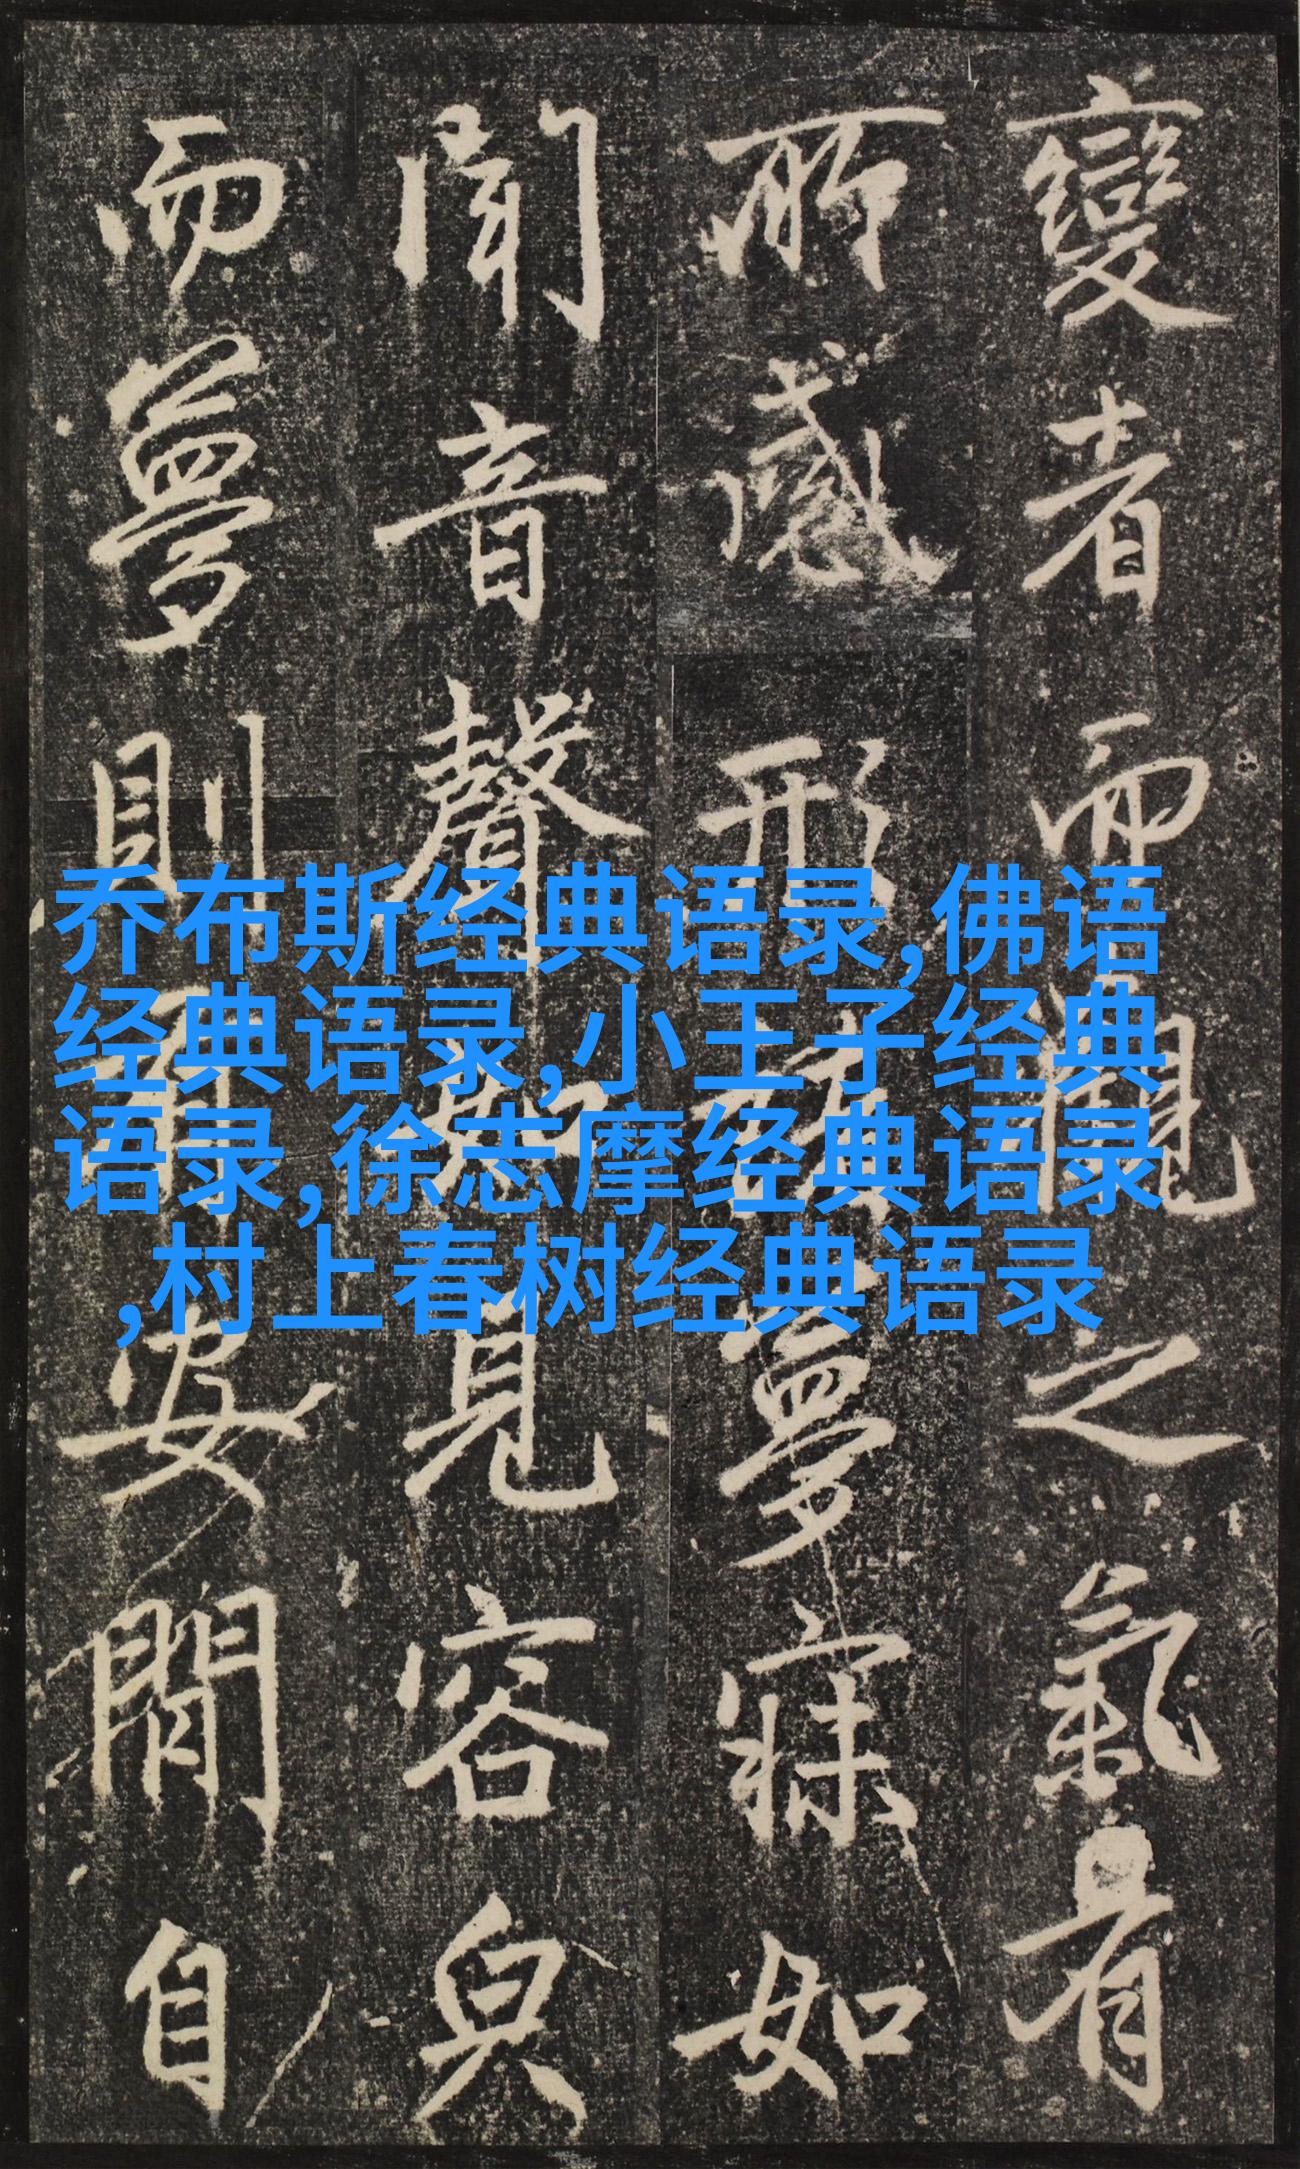 變者而觀之氣有
所感形夢寐如
聞音聲如見容皃
而夢則安閒自
乔布斯经典语录,佛语
经典语录,小王子经典
语录,徐志摩经典语录
,村上春树经典语录